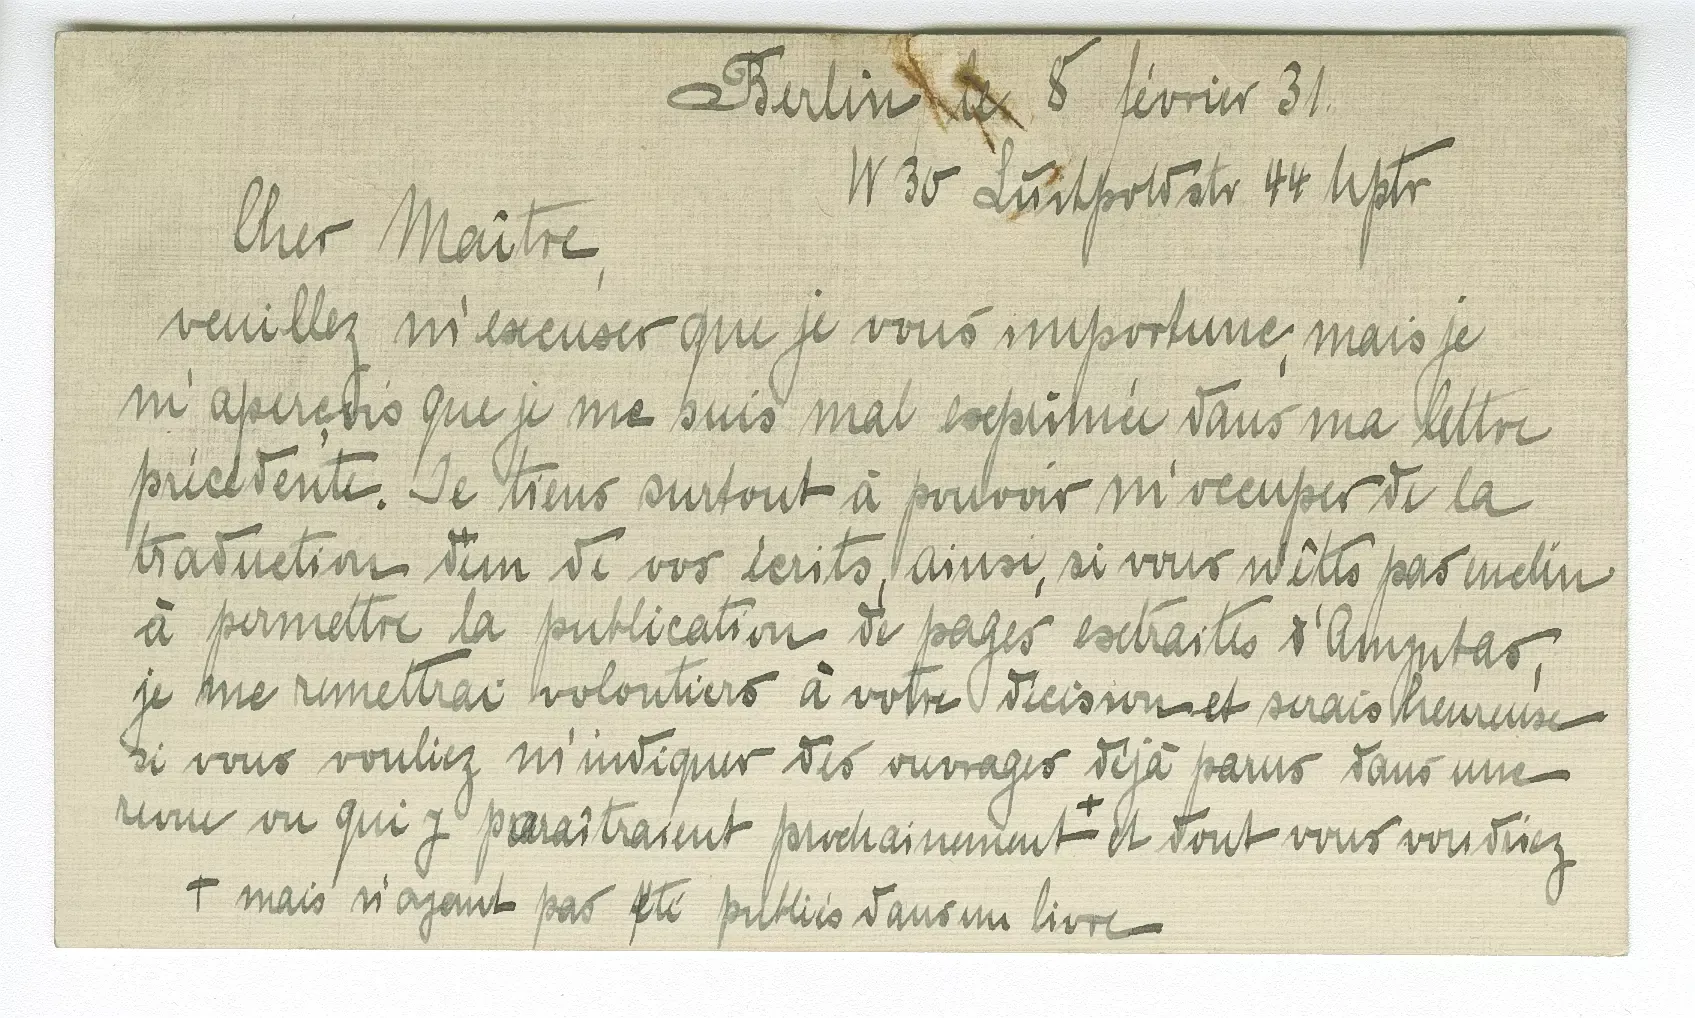 Berlin le 8 février 31.
W 30 Luitpoldstr 44 hptr
Cher Maître,
veuillez m'excuser que je vous importune, mais je
m'aperçois que je me suis mal exprimée dans ma lettre
précédente. Je tiens surtout à pouvoir m'occuper de la
traduction d'un de vos écrits, ainsi, si vous n'êtes pas enclin
à permettre la publication de pages extraites d'Amyntas,
je me remettrai volontiers à votre décision et serais heureuse
si vous vouliez m'indiquer des ouvrages déjà parus dans une
revue ou qui y paraîtraient prochainement + et dont vous voudriez
+ mais n'ayant pas été publiés dans un livre